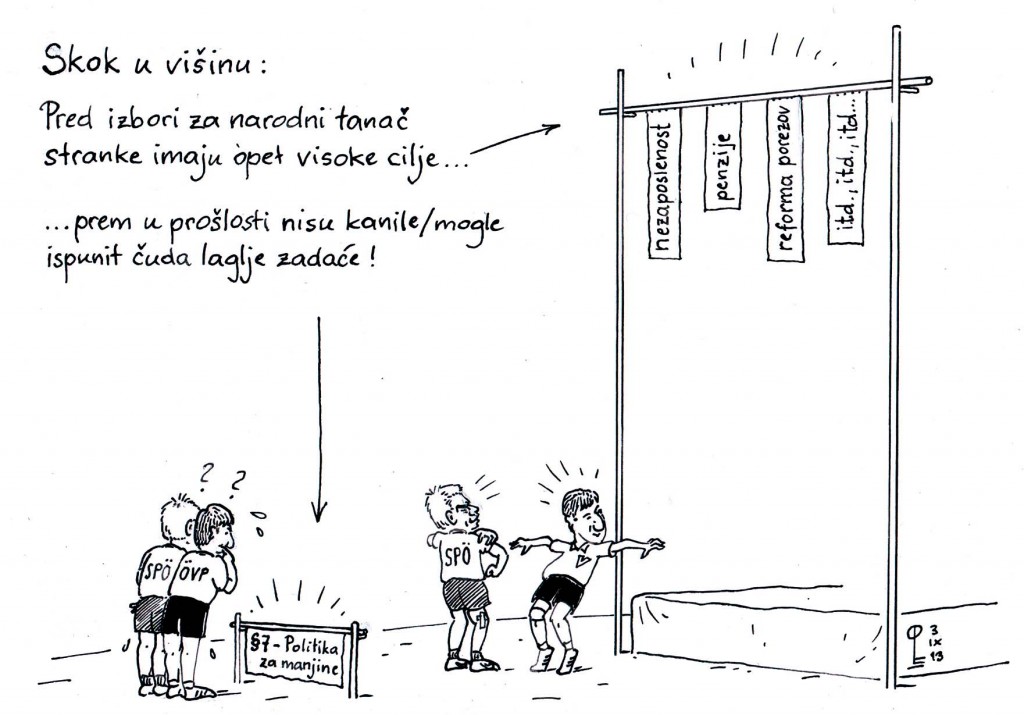 Skok u višinu:
Pred izbori za narodni tanač
stranke imaju opet visoke cilje...
...prem u prošlosti nisu kanile/mogle
ispunit čuda laglje zadaće!
nezaposlenost
penzije
reforma porezov
itd., itd., itd...
? ?
SPÖ
ÖVP
SPÖ
§7-Politika
za manjine
3
IX
13